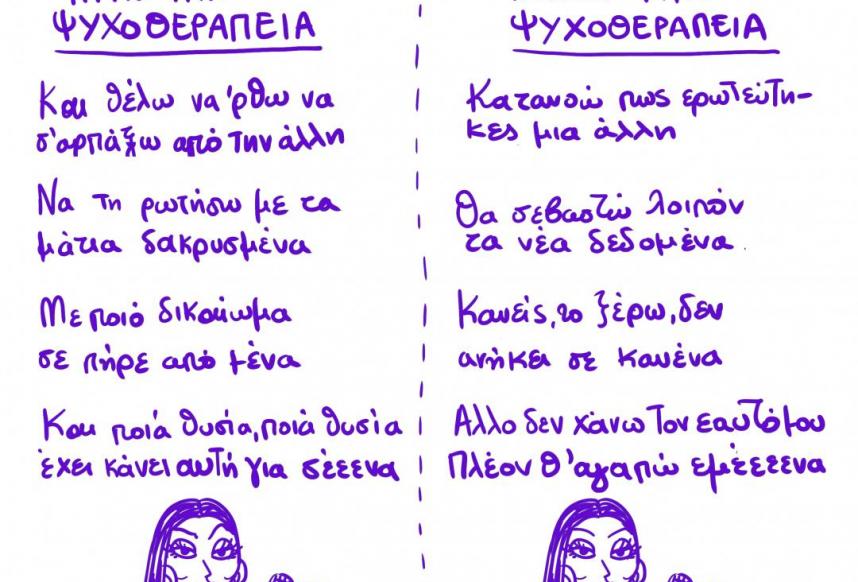 ΨΥΧΟΘΕΡΑΠΕΙΑ
Και θέλω να 'ρθω να
σ'αρπάξω από την άλλη
Να τη ρωτήσω με τα
μάτια δακρυσμένα
Με ποιό δικαίωμα
σε πήρε από μένα
Και ποιά θυσία, ποιά θυσία
έχει κάνει αυτή για σέεενα
ΨΥΧΟΘΕΡΑΠΕΙΑ
Κατανοώ πως ερωτεύτη-
κες μια άλλη
Θα σεβαστώ λοιπόν
τα νέα δεδομένα.
Κανείς, το ξέρω, δεν
ανήκει σε κανένα
Άλλο δεν χάνω τον εαυτό μου
Πλέον θ'αγαπώ εμέεεενα